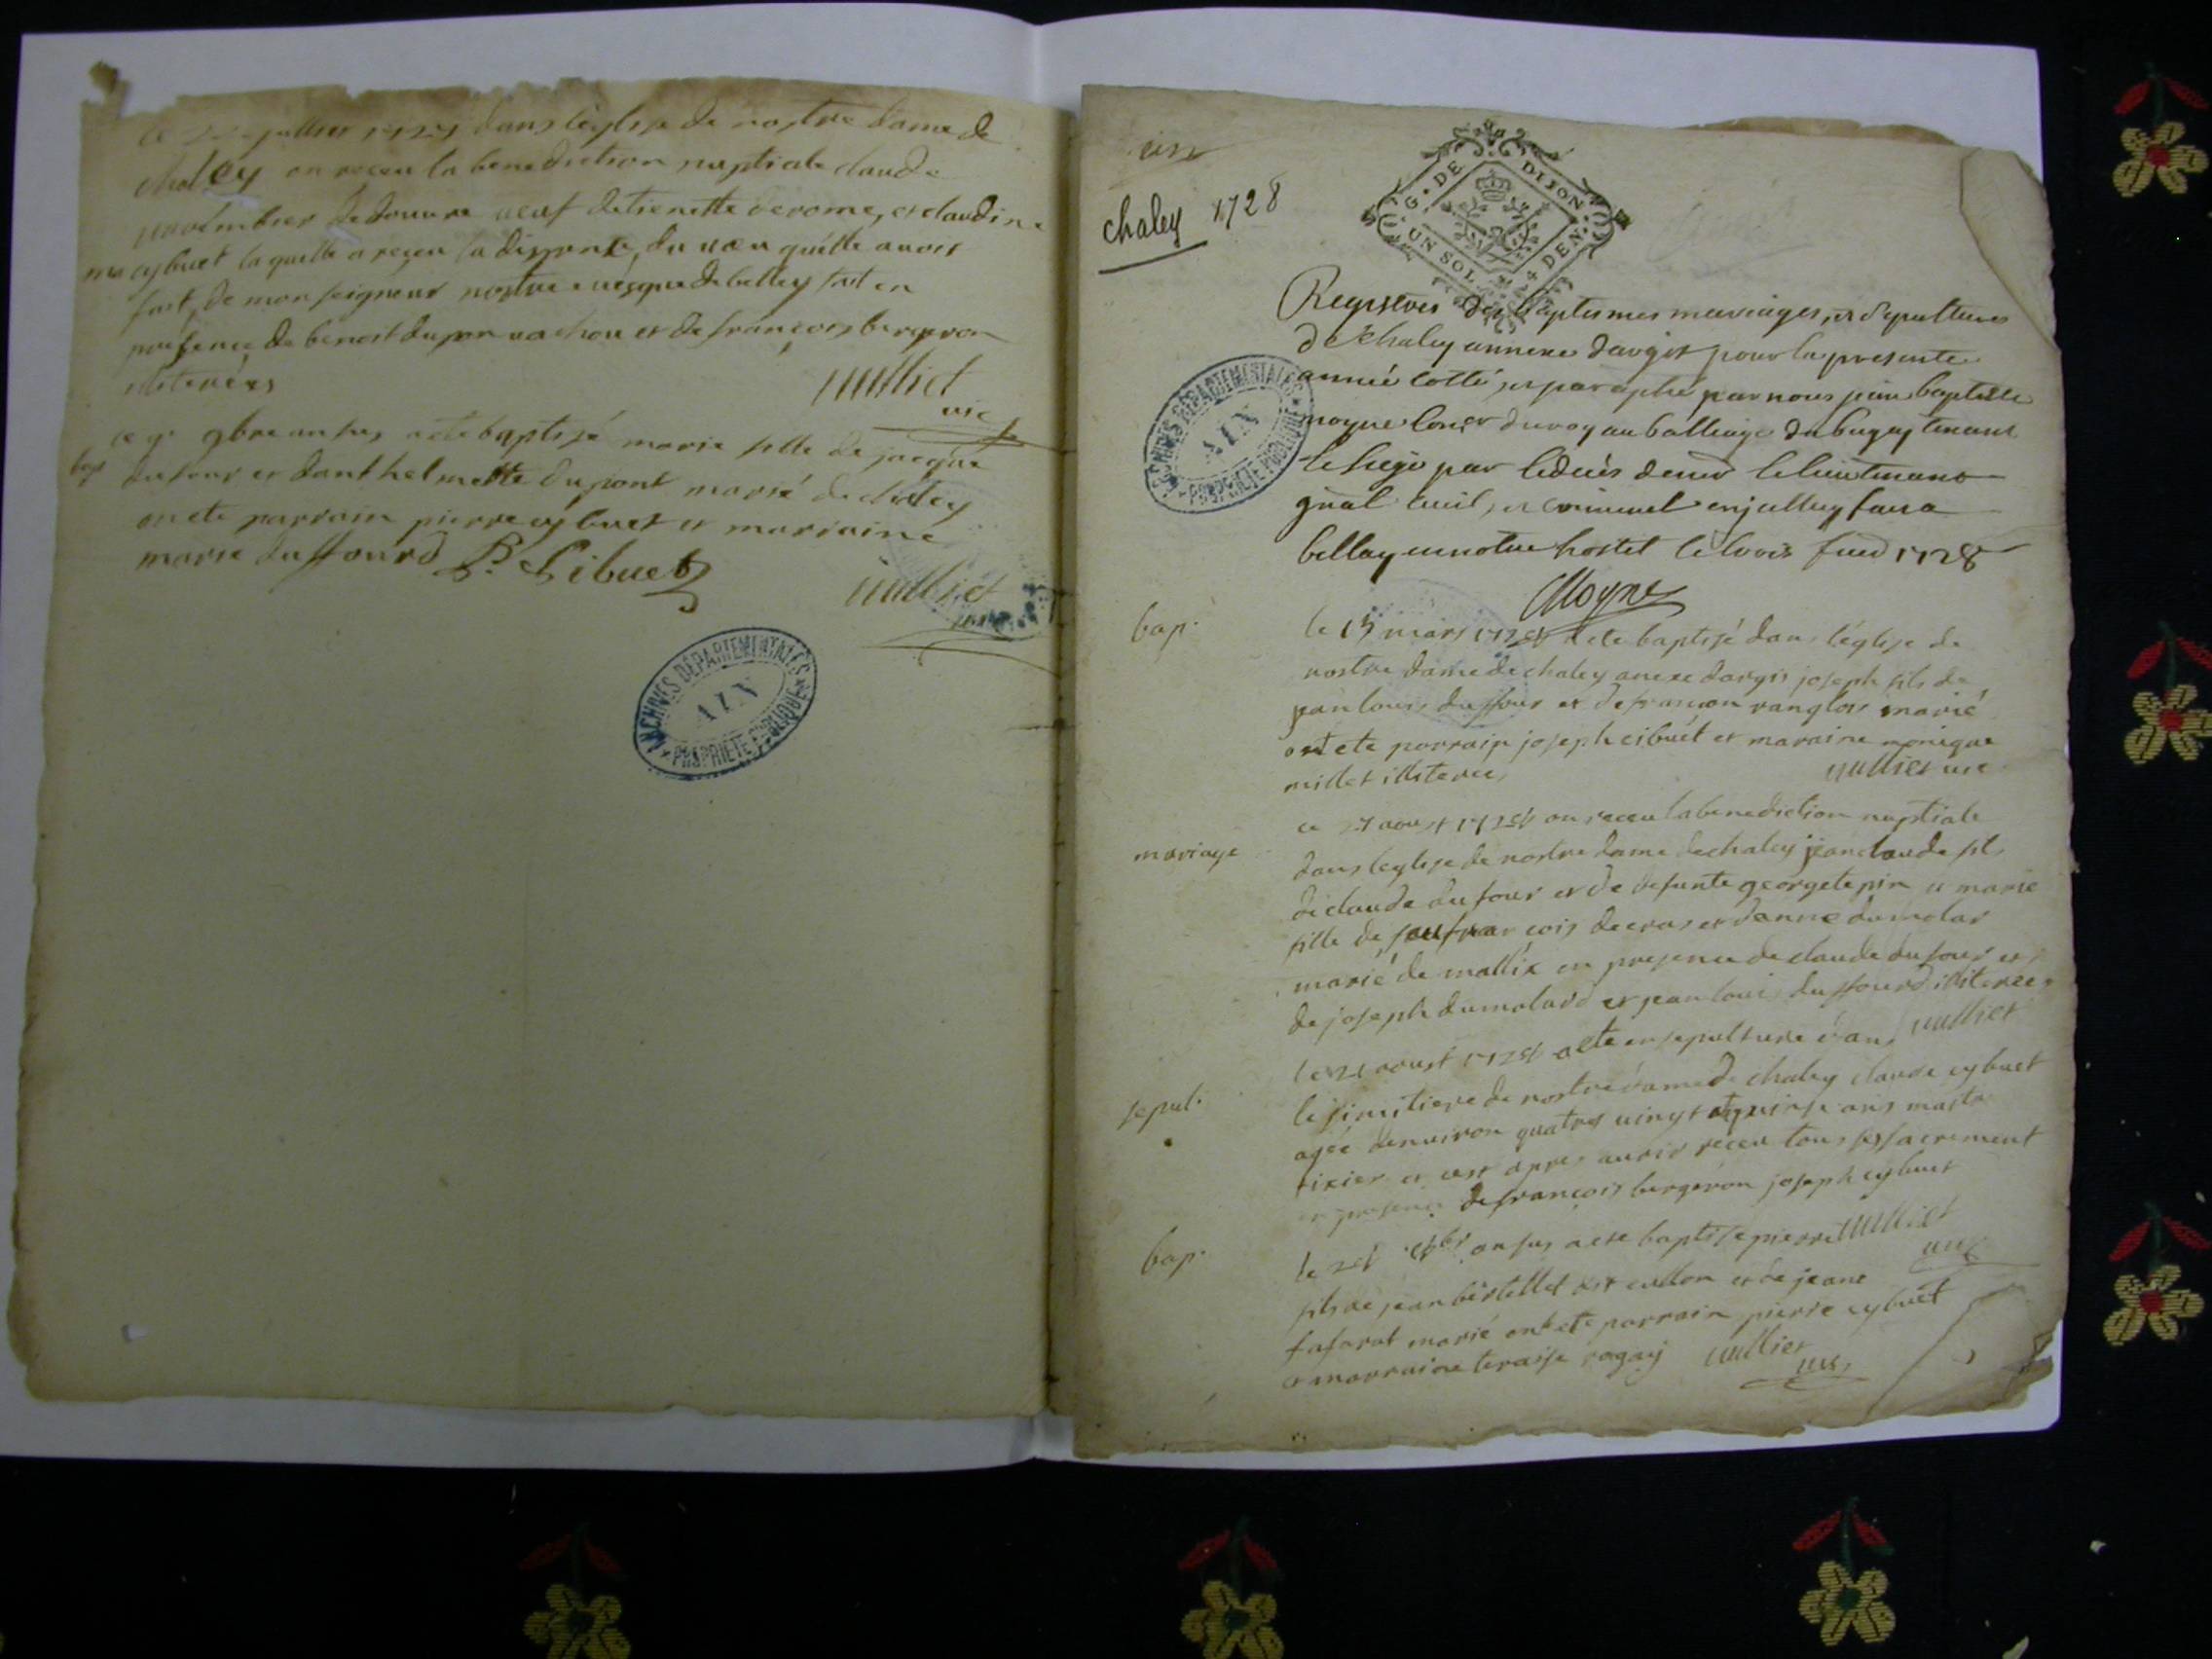 ce juilliet 1727 dans leglise de nostre dame de
chaley on receu la benediction nuptiale claude
de douvre veuf detienette derome, et claudine
cybuet laquelle a reçeu la dispense, du vœu quelle avoit
fait, de monseigneur nostre evésque de belley fait en
presence de benoit dupon vachon et de françois bergeron
illiterées
vulliet
vic
bap
ce 9e 9bre an sus a ete baptisé marie fille de jacque
dufour et danthelmette dupont marié de chaley
on ete parrain pierre cybuet et marraine
marie duffourd P. Sibuet
vulliet
ARCHIVES DÉPARTEMENTALES
AIN
PROPRIÉTÉ PUBLIQUE
un
chaley 1728
G. DE DIJON
UN SOL 4 DEN.
Registres des baptesmes mariages, et sepultures
de chaley annexe dargis pour la presente
année cotté, et paraphé par nous jean baptiste
moyne coner du roy au balliage du bugey tenant
le siege par le decés de mr le lieutenant
gnal civil, et criminel
bellay en notre hostel le trois 1728
Moyne
ARCHIVES DÉPARTEMENTALES
AIN
PROPRIÉTÉ PUBLIQUE
bap.
le 15 mars 1728 a ete baptisé dans léglise de
nostre dame de chaley anexe dargis joseph fils de
jean louis duffour et de françon ranglos marié
ont ete parrain joseph cibuét et maraine monique
millet illiteree, vulliet vic
mariage
ce 27 aoust 1728 on receu la benediction nuptiale
dans leglise de nostre dame de chaley jean claude fils
de claude dufour et de defunte georgete pin et marie
fille de feu francois decras et danne dumolar
marié de mallix en presence de claude dufour et
de joseph dumolard et jean louis duffourd illiterees
vulliet
sepul.
le 21 aoust 1728 a ete en sepulture dans
le simitiere de nostre dame de chaley claude cybuet
agée denviron quatres vingt et quinse ans maitre
tixier et cest apres avoir receu tous ses sacrement
en presence de françois bergeron joseph cybuet
vulliet
vic
bap.
le 28 8bre an sus a ete baptisé pierre
fils de jean bertellet dit cullon et de jeane
fafarat marié ont ete parrain pierre cybuét
et marraine teraise rogay vulliet
vic